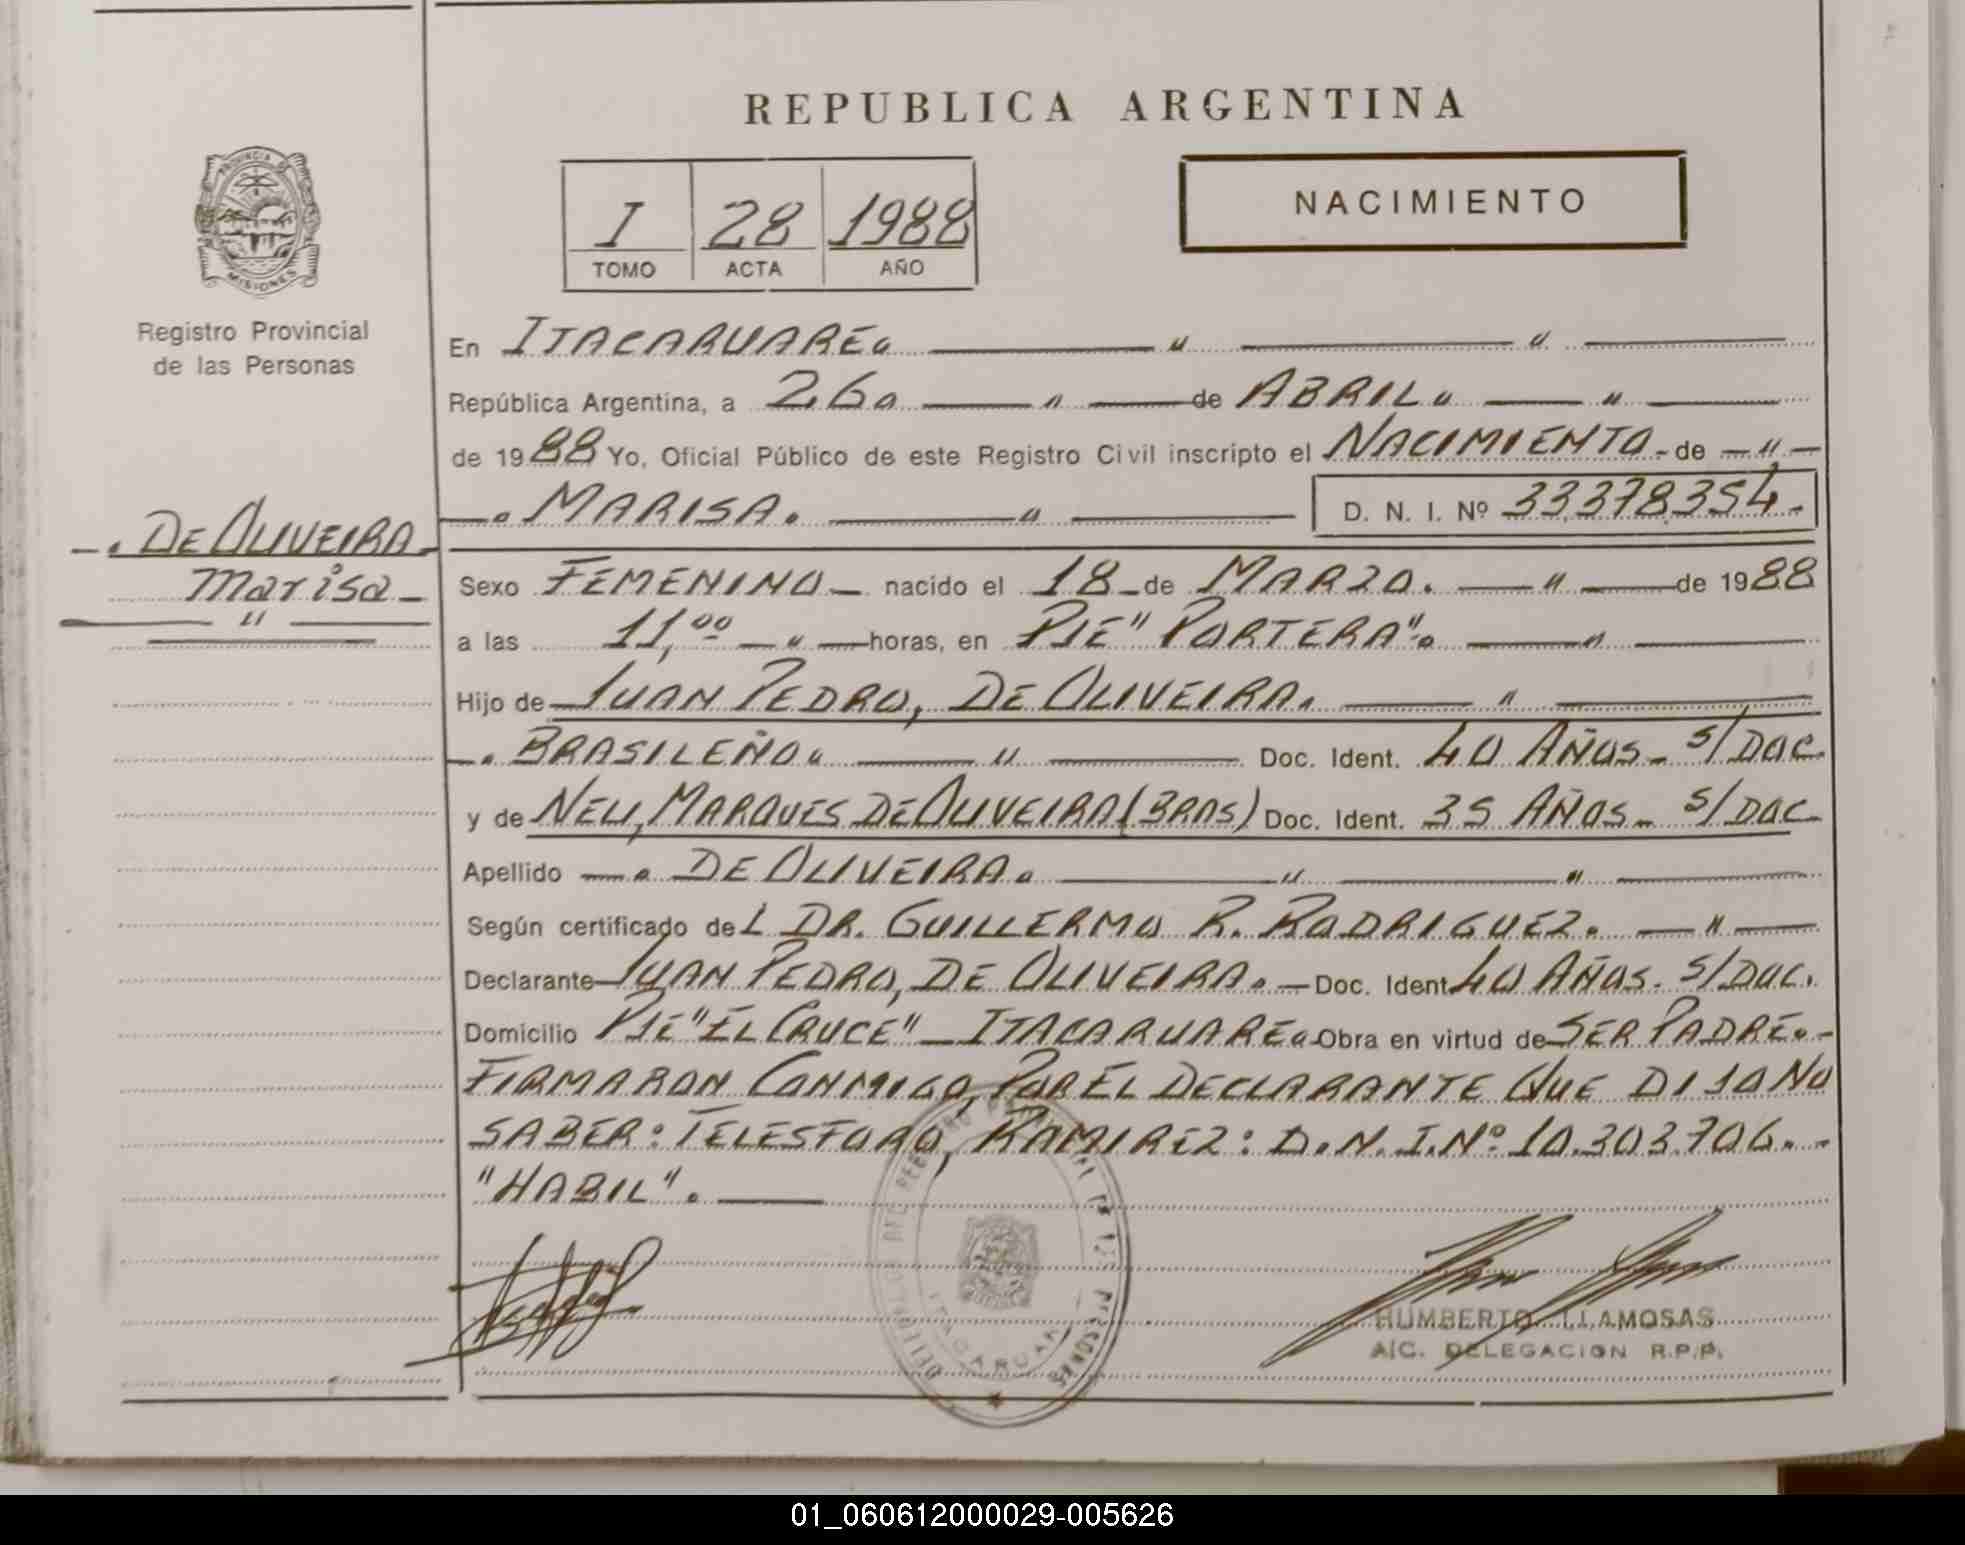 REPUBLICA ARGENTINA
PROVINCIA DE
MISIONES
Registro Provincial
de las Personas
I 28 1988
TOMO ACTA AÑO
NACIMIENTO
En ITACARUARE.. — " — " —
República Argentina, a 26.. — " — de ABRIL.. — " —
de 1988 Yo, Oficial Público de este Registro Civil inscripto el NACIMIENTO - de — " —
—. MARISA. — " — D. N. I. Nº 33.378.354.-
—. DE OLIVEIRA.-
Marisa —
— " —
Sexo FEMENINO — nacido el 18 - de MARZO. — " — de 1988
a las 11,00 — " — horas, en PJE "PORTERA". — " —
Hijo de — JUAN PEDRO, DE OLIVEIRA. — " —
—. BRASILEÑO.. — " — Doc. Ident. 40 AÑOS - S/DOC.
y de NELI, MARQUES DE OLIVEIRA (BRAS) Doc. Ident. 35 AÑOS - S/DOC.
Apellido —. DE OLIVEIRA. — " — " —
Según certificado del DR. GUILLERMO R. RODRIGUEZ. — " —
Declarante — JUAN PEDRO, DE OLIVEIRA. — Doc. Ident. 40 AÑOS. S/DOC.
Domicilio PJE "EL CRUCE" — ITACARUARE.. Obra en virtud de SER PADRE.-
FIRMARON CONMIGO, POR EL DECLARANTE QUE DIJO NO
SABER: TELESFORO, RAMIREZ: D.N.I.Nº 10.303.706.-
"HABIL". —
HUMBERTO LLAMOSAS
A/C. DELEGACION R.P.P.
01_060612000029-005626